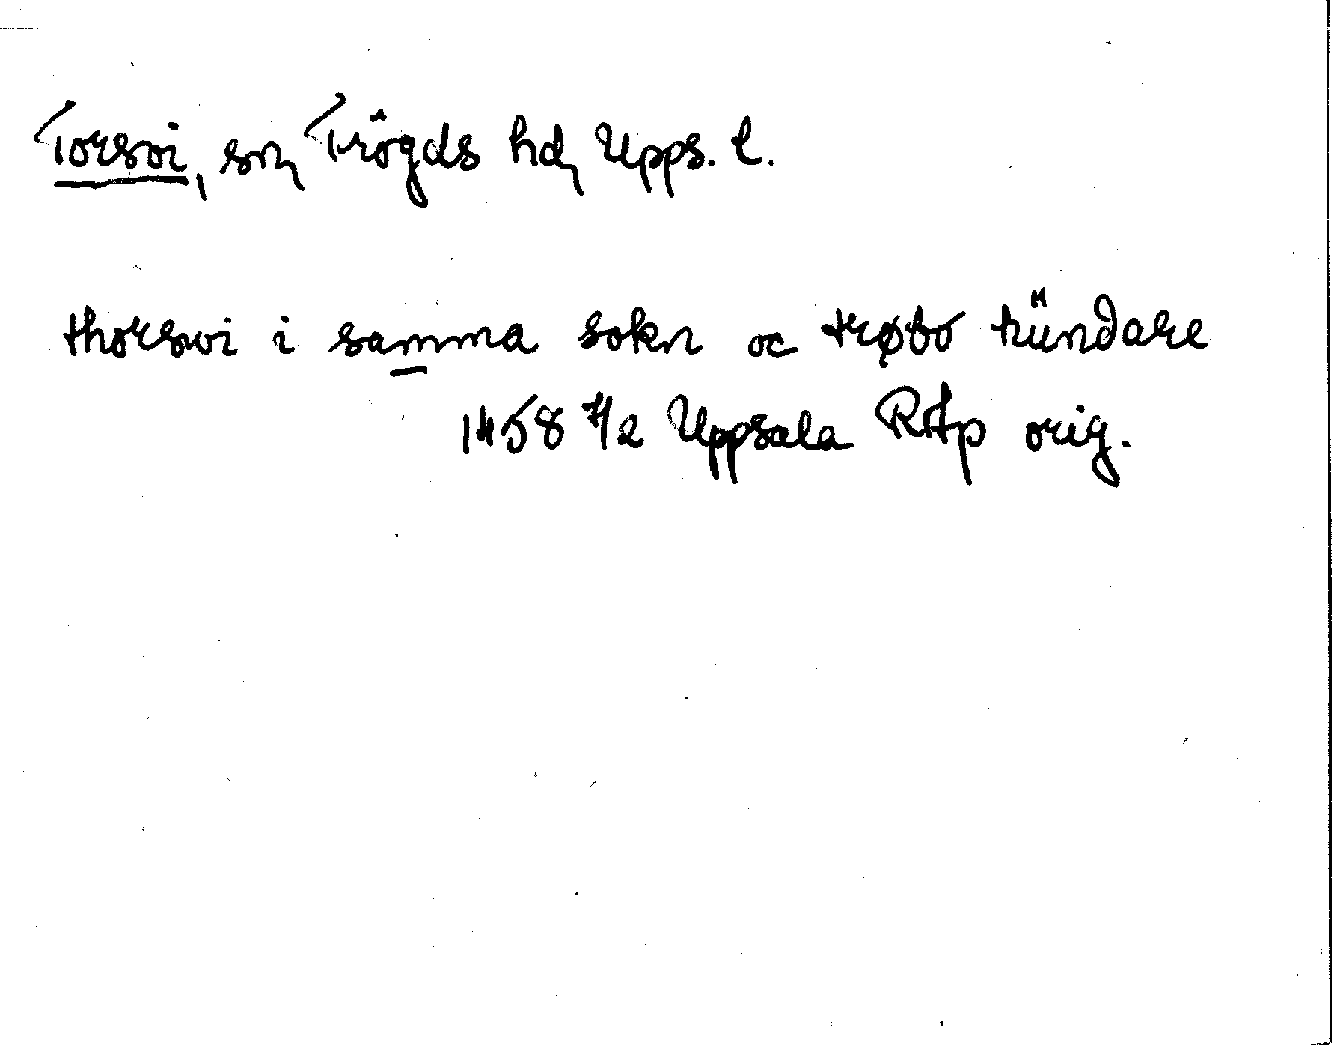 Torsvi, sn, Trögds hd, Upps. l.
thorswi i samma sokn oc trøbo hündare
1458 4/2 Uppsala RAp orig.